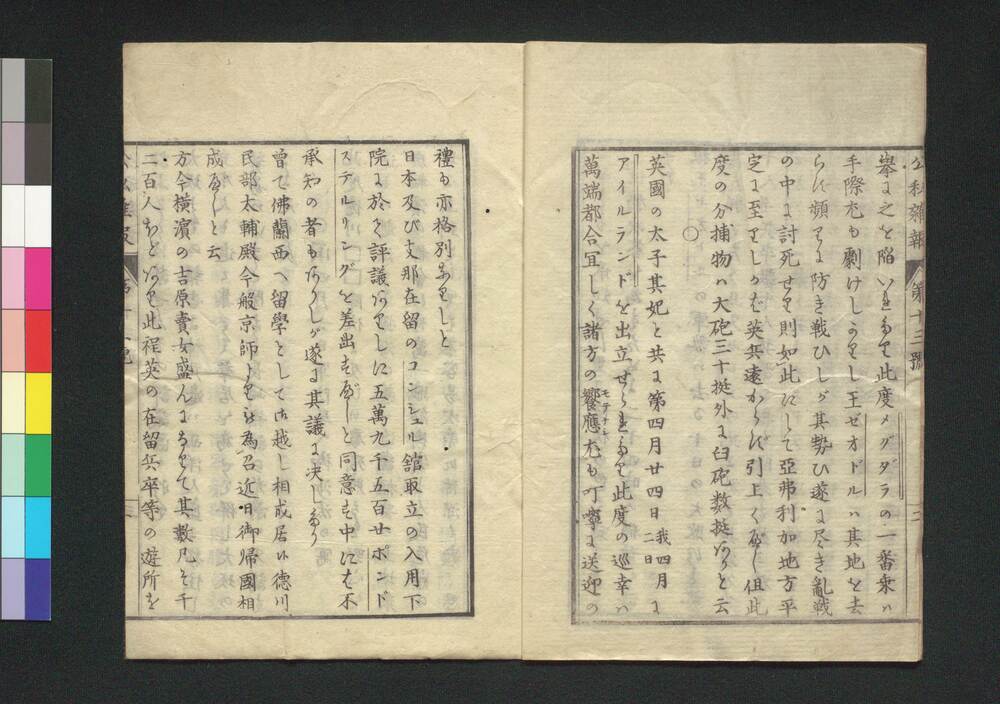 公私雑報 第十三號 二
擧に之を陥いれたり此度メグダラの一番乗ハ
手際尤も劇けしかりし王ゼオドルハ其地を去
らず頻りに防き戦ひしが其勢ひ遂に尽き亂戦
の中に討死せり則如此にして亞弗利加地方平
定に至りしかば英兵遠からず引上くべし但此
度の分捕物ハ大砲三十挺外に臼砲数挺ありと云
〇
英國の太子其妃と共に第四月廿四日我四月二日に
アイルランドを出立せられたり此度の巡幸ハ
萬端都合冝しく諸方の饗應モテナシ尤も叮嚀に送迎の
禮も亦格別なりしと
日本及び支那在留のコンシェル舘取立の入用下
院に於て評議ありしに五萬九千五百廿ポンド
ステルリングを差出すべしと同意す中にも不
承知の者もありしが遂に其議に决したり
曾て佛蘭西へ留學として御越し相成居候德川
民部太輔殿今般京師より被為召近日御帰國相
成べしと云
方今横濱の吉原賣女盛んになりて其數凡そ千
二百人ほどあり此程英の在留兵卒等の遊所を